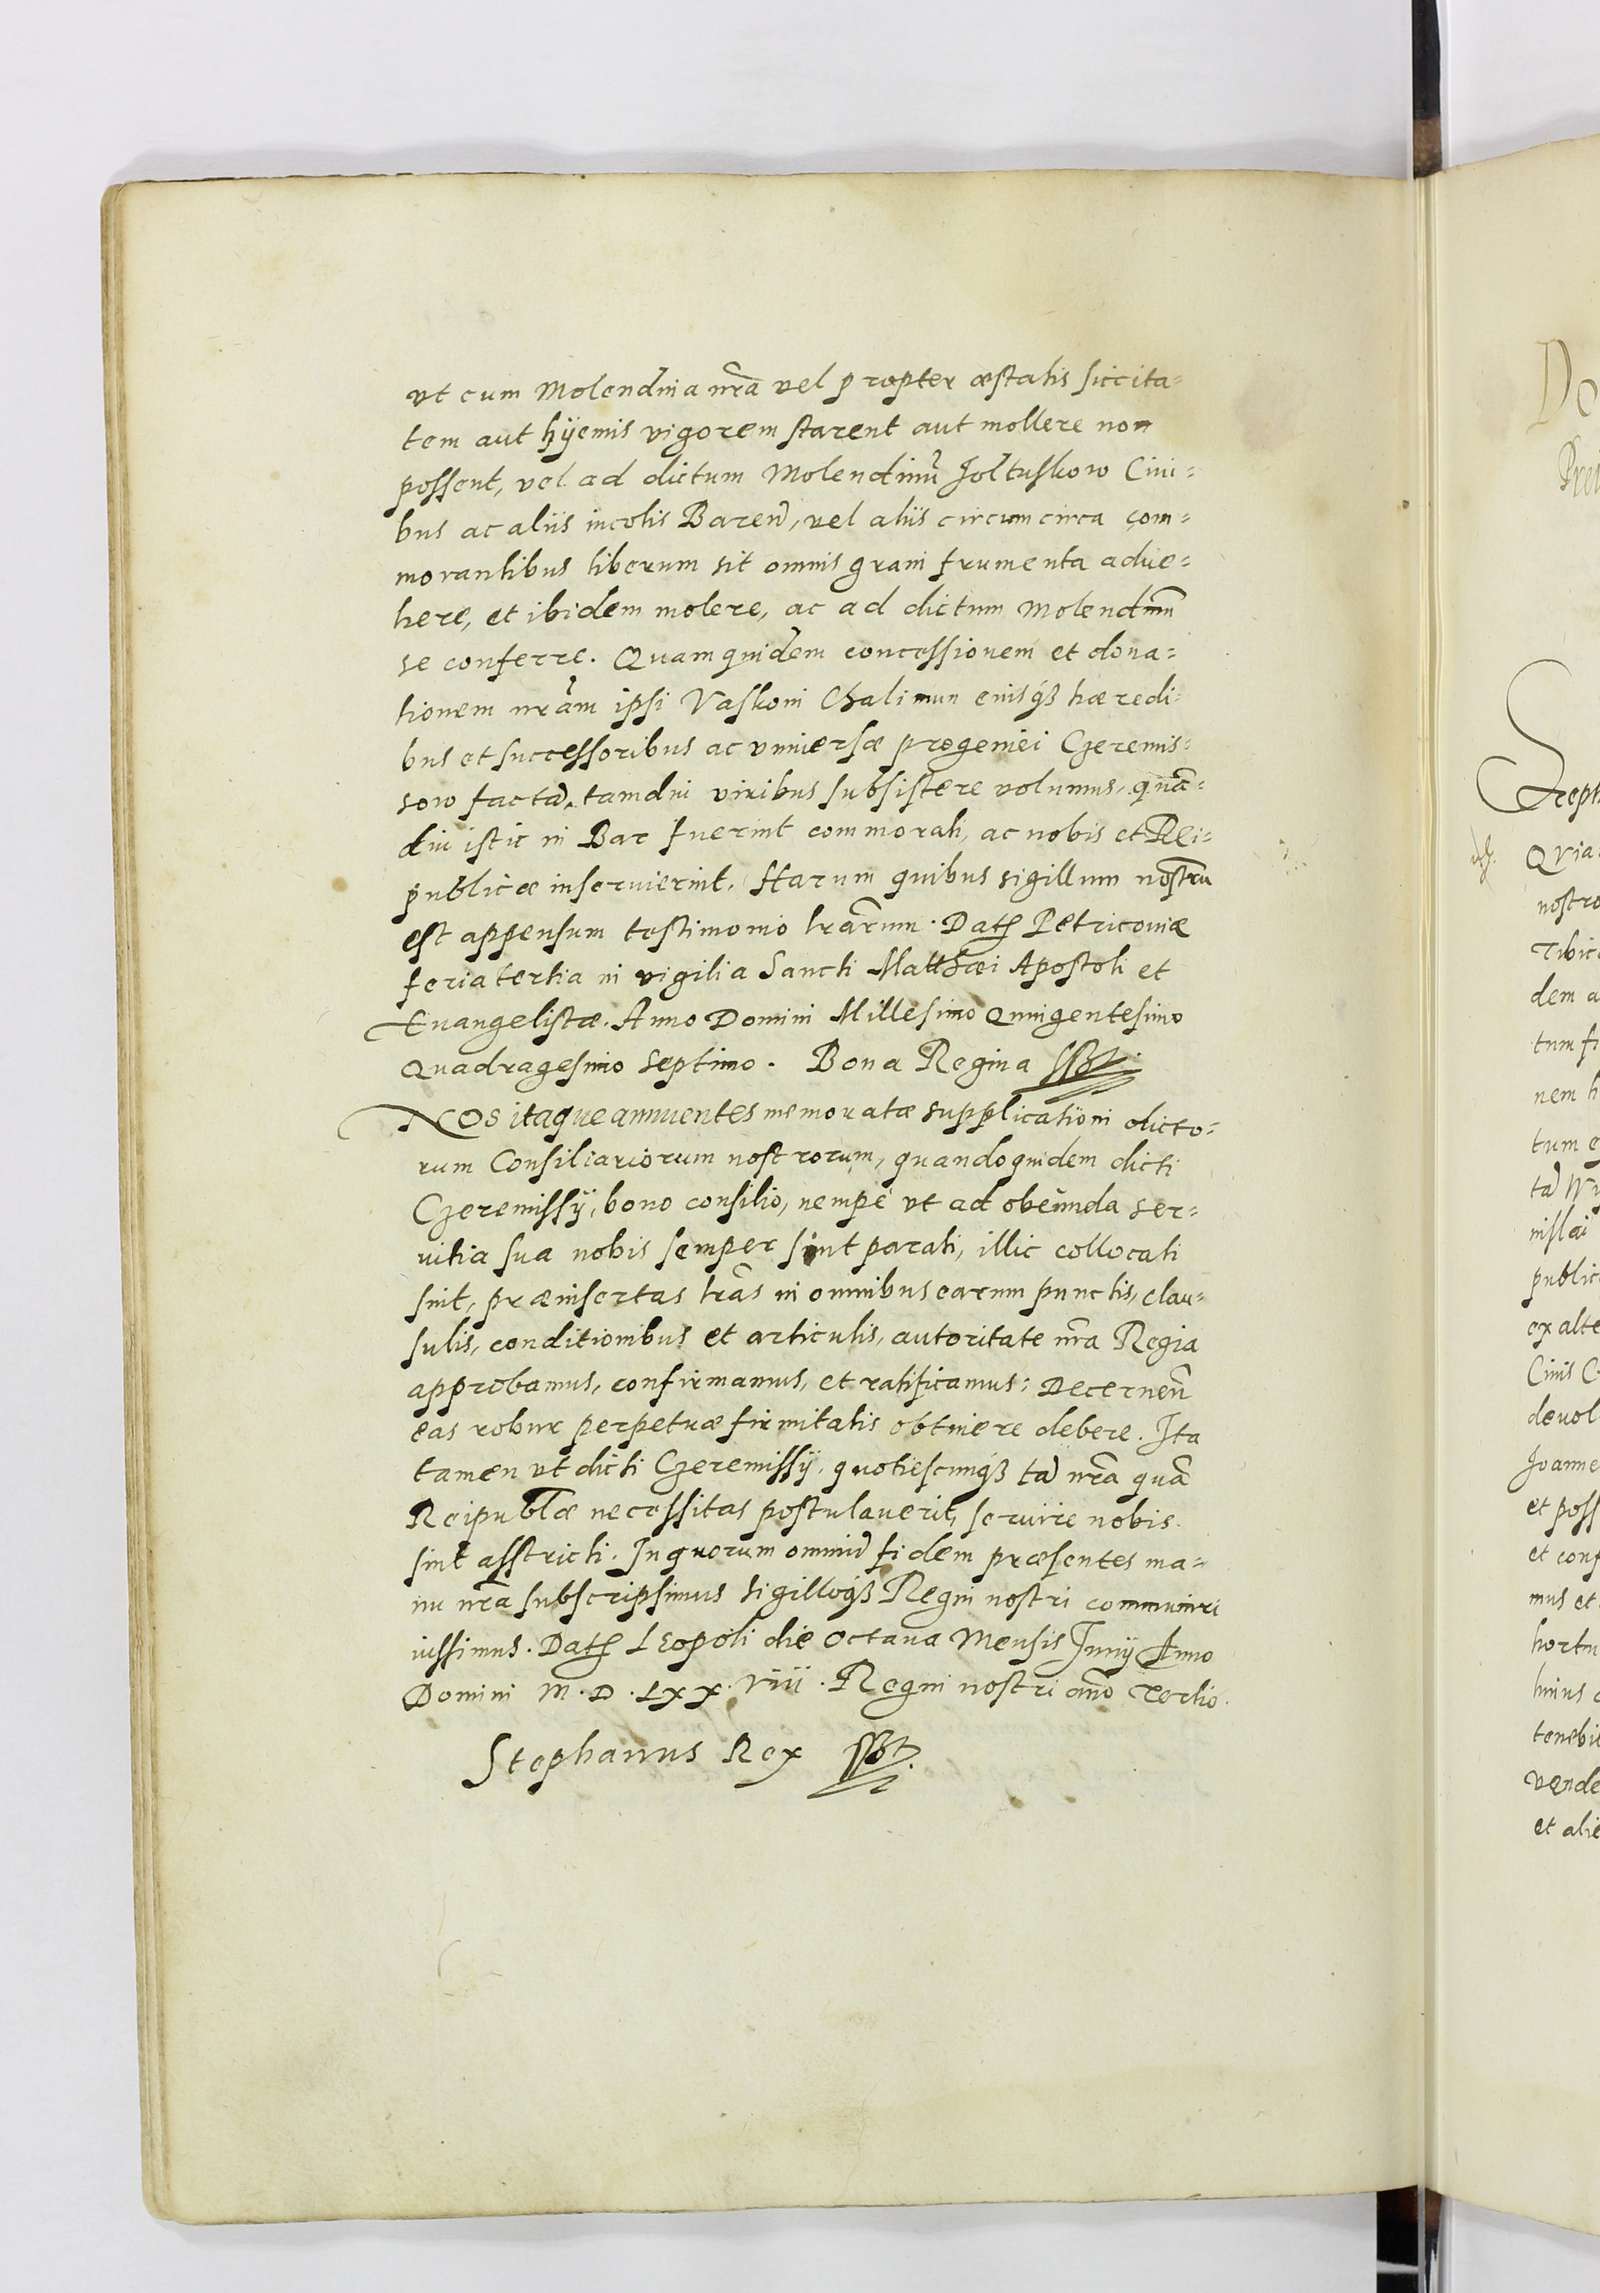 ut cum Molendina nr̃a vel propter æstatis siccita=
tem aut hÿemis vigorem starent aut mollere non
possent, vel ad dictum Molendinũ Joltuskow Ciui=
bus ac aliis incolis Bareñ, vel aliis circumcirca com=
morantibus liberum sit omnis grani frumenta adue=
here, et ibidem molere, ac ad dictum Molendinũ
se conferre. Quam quidem concessionem et dona=
tionem nr̃am ipsi Vaskoni Chalimun eiusq3 hæredi=
bus et successoribus ac vniuersæ progeniei Czeremis=
sow factã, tamdiu viribus subsistere volumus, quã=
diu istic in Bar fuerint commorati, ac nobis et Rei=
publicæ inseruierint. Harum quibus sigillum nostrũ
est appensum testimonio lr̃arum. Datȝ Petricouiæ
feria tertia in vigilia Sancti Matthæi Apostoli et
Euangelistæ. Anno Domini Millesimo Quingentesimo
Quadragesimo septimo. Bona Regina sst.
Nos itaque annuentes memoratæ supplicationi dicto=
rum Consiliariorum nostrorum, quandoquidem dicti
Czeremissÿ, bono consilio, nempe ut ad obeunda ser=
uitia sua nobis semper sint parati, illic collocati
sint, præinsertas lr̃as in omnibus earum punctis, clau=
sulis, conditionibus et articulis, autoritate nr̃a Regia
approbamus, confirmamus, et ratificamus: Decerneñ
eas robur perpetuæ firmitatis obtinere debere. Ita
tamen ut dicti Czeremissÿ, quotiescunq3 tã nr̃a quã
Reipub̃læ necessitas postulauerit, seruire nobis
sint asstricti. In quorum omniũ fidem præsentes ma=
nu nr̃a subscripsimus sigilloq3 Regni nostri communiri
iussimus. Datȝ Leopoli die Octaua Mensis Junÿ Anno
Domini M. D. LXX. Viii. Regni nostri año Tertio.
Stephanus Rex sst.
Do
Steph
Quia
nostro
dem a
tum fi
nem h
tum e
public
ex alte
Ciuis C
deuol
Joanne
et poss
et conf
mus et
tenebi
vende
et alie